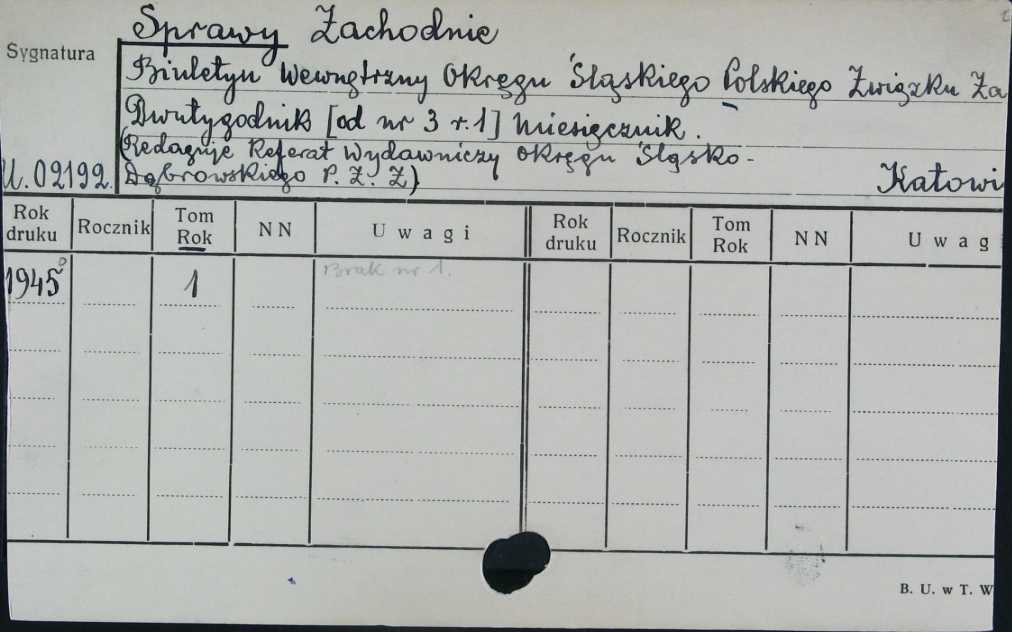 Sprawy Zachodnie
Sygnatura
Biuletyn Wewnętrzny Okręgu Śląskiego Polskiego Związku Za
Dwutygodnik [od nr 3 r. 1] Miesięcznik.
(Redaguje Referat Wydawniczy Okręgu Śląsko-
U. 02192. Dąbrowskiego P. Z. Z) Katowi
Rok druku Rocznik Tom Rok NN Uwagi Rok druku Rocznik Tom Rok NN Uwag
1945 1 Brak nr 1.
B. U. w T. W